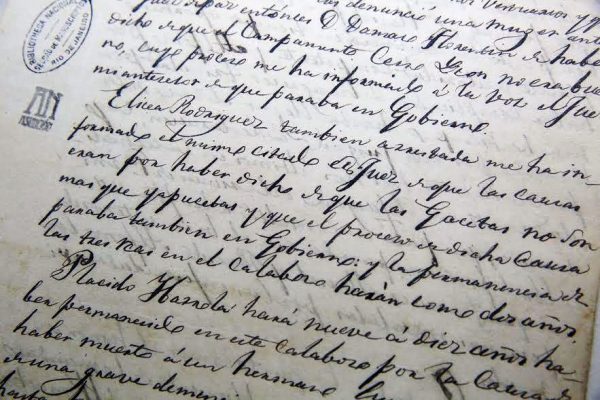 BIBLIOTHECA NACIONAL
RIO DE JANEIRO
AN
ASUNCION
denunció una muger
entónces D. Damaso Florentin de haber
dicho de que el Campamento Cerro Leon no era bue
no, cuyo proceso me ha informado á la voz el Jue
mi antecesor de que paraba en Gobierno.
Elisea Rodriguez tambien arrestada me ha in-
formado el mismo citado Juez de que las causas
eran por haber dicho de que las Gacetas no son
mas que y que el proceso de dicha Causa
paraba tambien en Gobierno: y la permanencia de
las tres reas en el calabozo harán como dos años.
Placido hará nueve á diez años ha-
ber permanecido en este calabozo por la Causa de
haber muerto á un hermano
de una grave
hasta